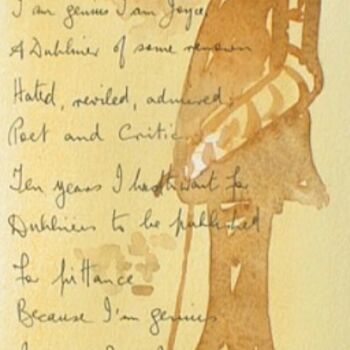 I am genius I am Joyce,
A Dubliner of some renown
Hated, reviled, admired,
Poet and Critic.
Ten years I had to wait for
Dubliners to be published
For pittance
Because I'm genius